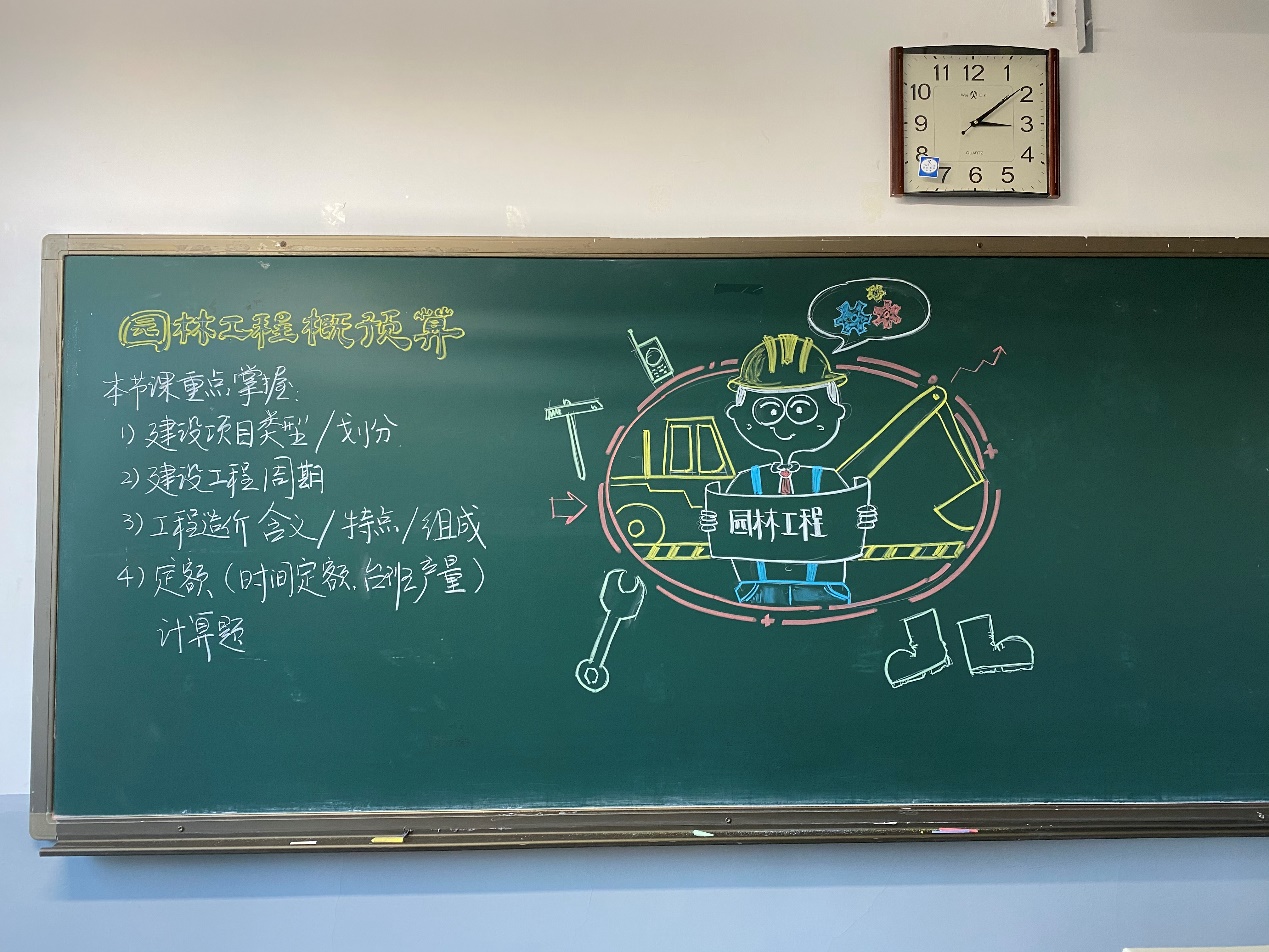 11 12 1
10 2
9 3
8 4
7 6 5
QUARTZ
园林工程概预算
本节课重点掌握:
1) 建设项目类型/划分
2) 建设工程周期
3) 工程造价含义/特点/组成
4) 定额(时间定额、台班产量)
计算题
园林工程